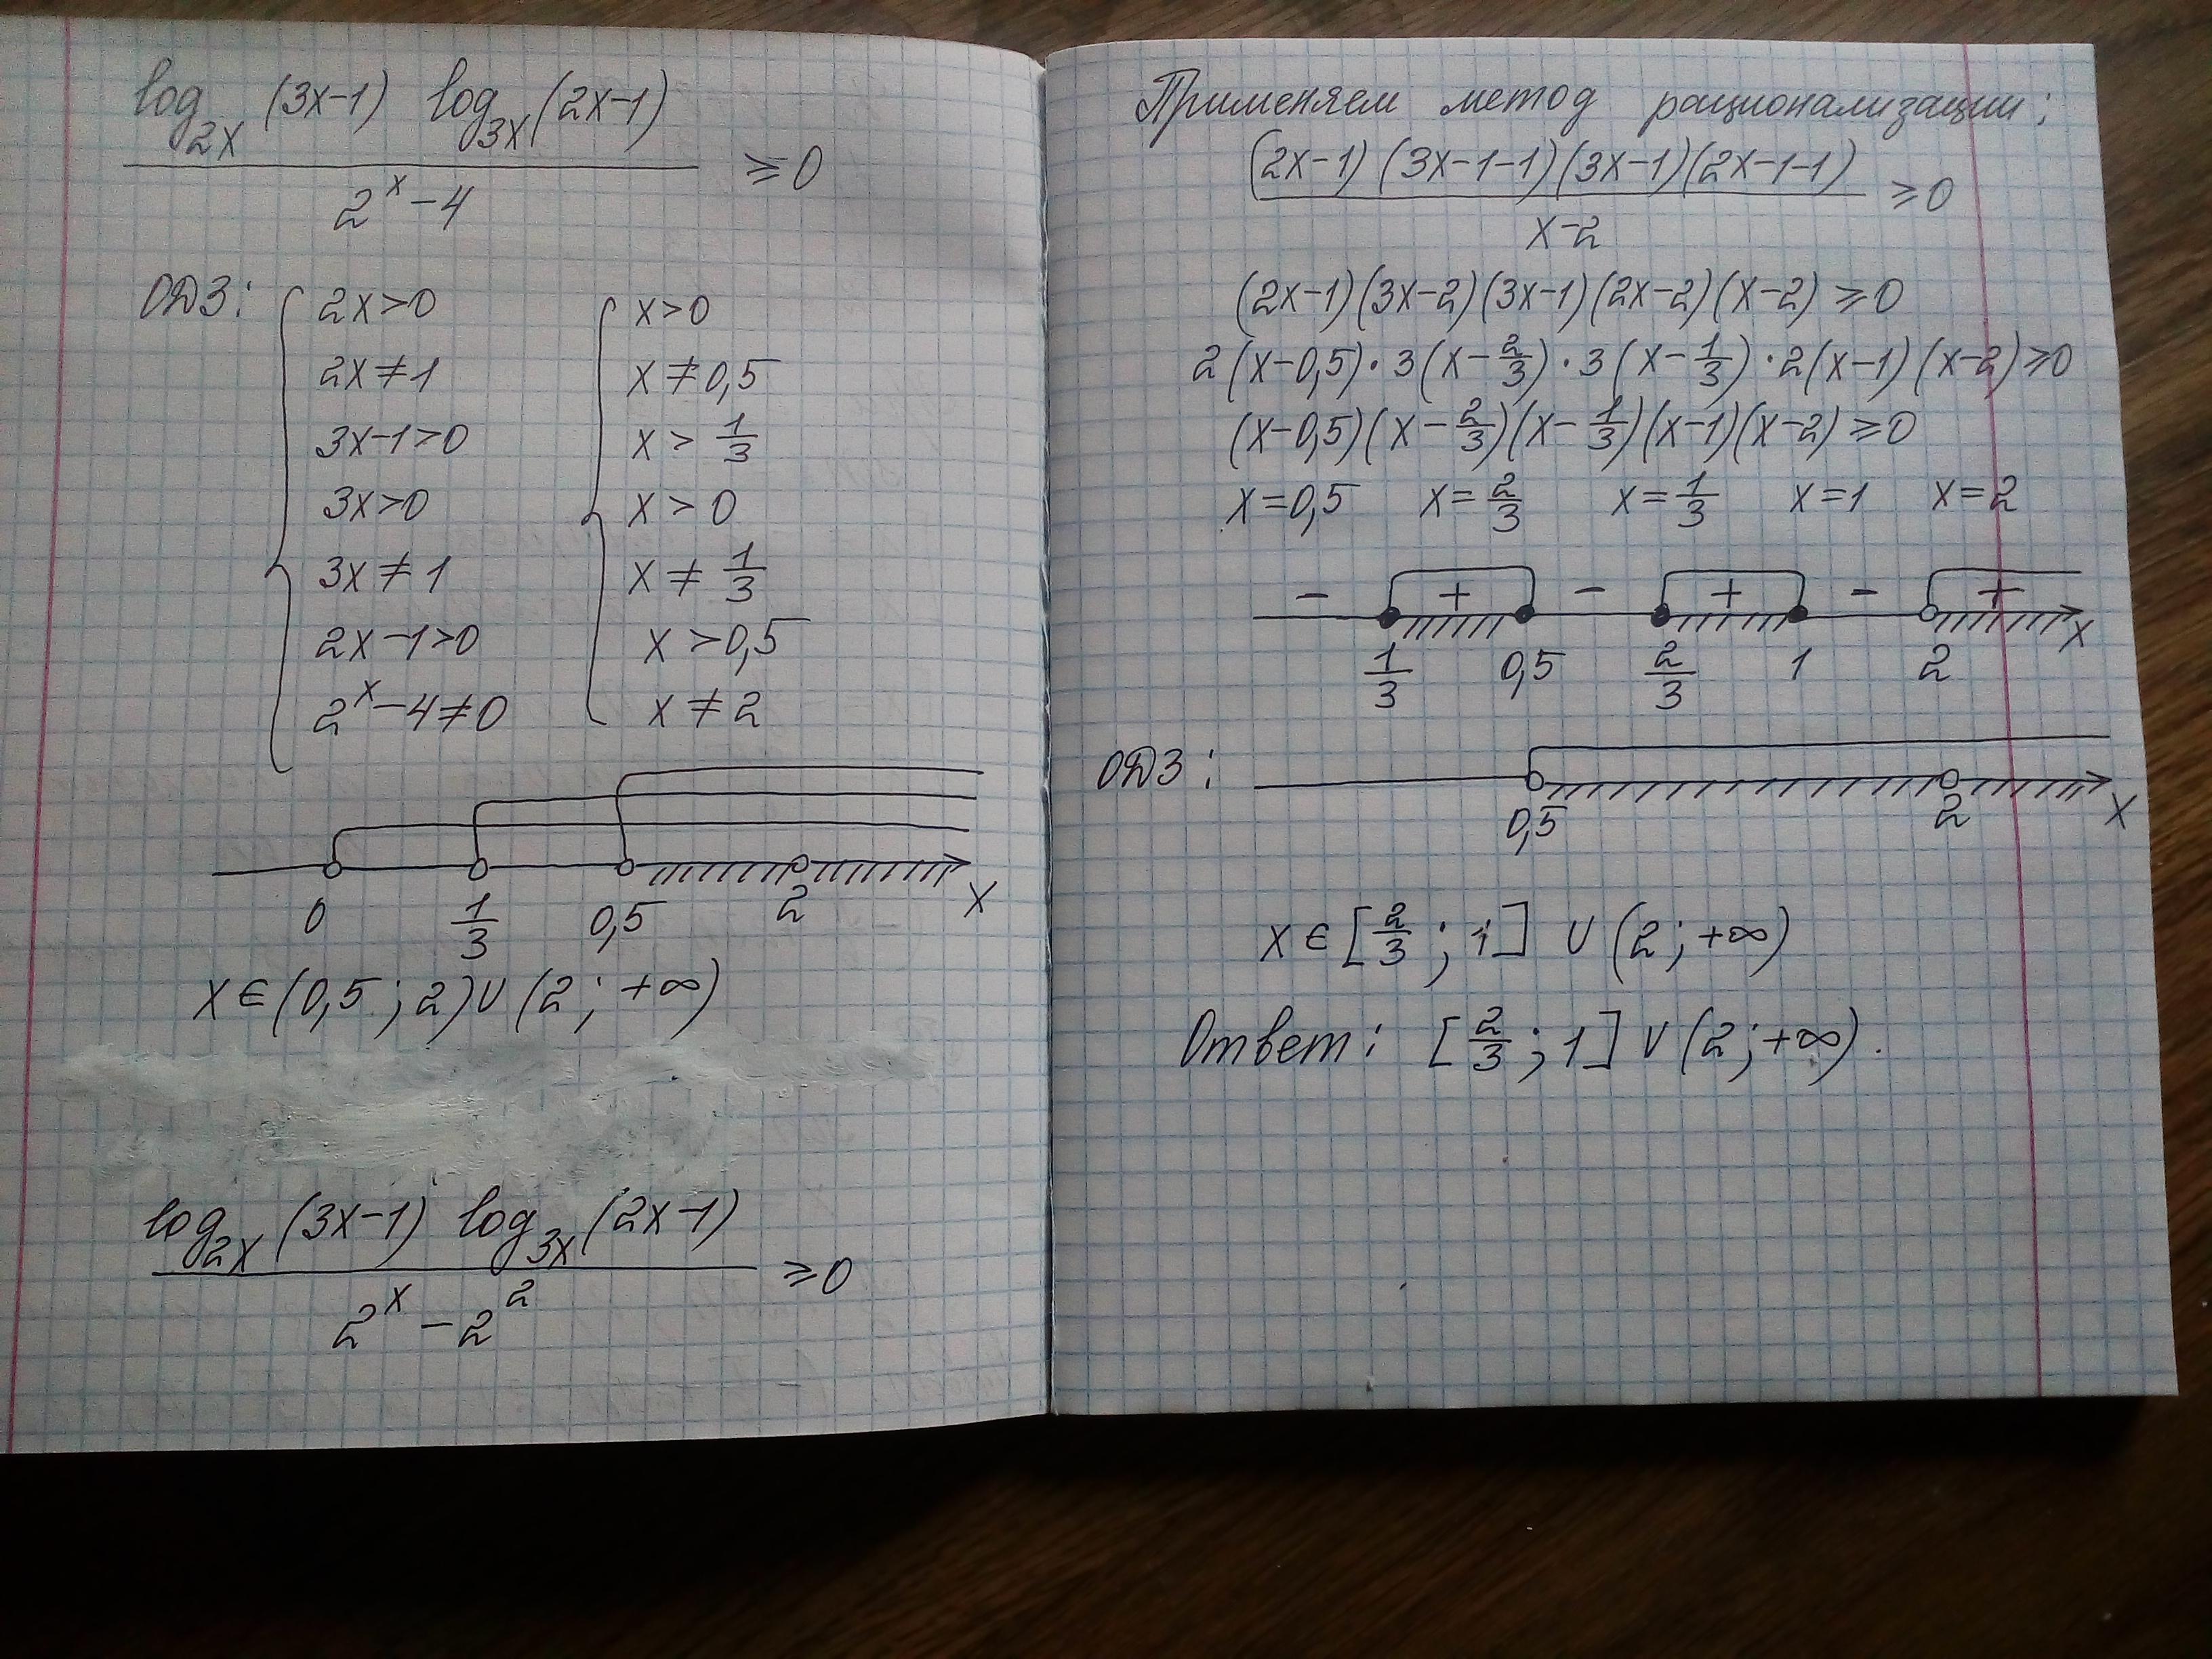 log₂ₓ (3x-1) log₃ₓ (2x-1)
2ˣ - 4
≥0
ОДЗ: 2x>0 x>0
2x≠1 x≠0,5
3x-1>0 x > 1/3
3x>0 x > 0
3x≠1 x ≠ 1/3
2x-1>0 x >0,5
2ˣ-4≠0 x ≠ 2
0 1/3 0,5 2 x
x ∈ (0,5 ; 2) ∪ (2 ; +∞)
log₂ₓ (3x-1) log₃ₓ (2x-1)
2ˣ - 2²
≥0
Применяем метод рационализации:
(2x-1) (3x-1-1)(3x-1)(2x-1-1)
x-2
≥0
(2x-1)(3x-2)(3x-1)(2x-2)(x-2) ≥0
2(x-0,5)·3(x-2/3)·3(x-1/3)·2(x-1)(x-2)≥0
(x-0,5)(x-2/3)(x-1/3)(x-1)(x-2)≥0
x=0,5 x=2/3 x=1/3 x=1 x=2
- + - + - +
1/3 0,5 2/3 1 2 x
ОДЗ:
0,5 2 x
x ∈ [2/3 ; 1] ∪ (2 ; +∞)
Ответ: [2/3 ; 1] ∪ (2 ; +∞).